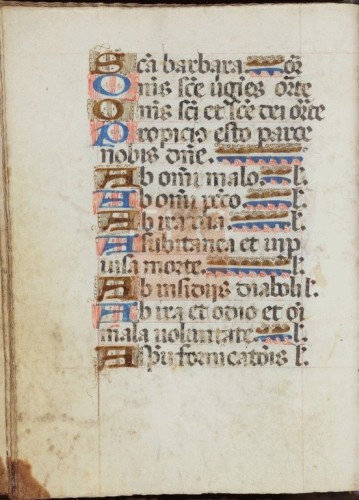 Scã barbara or̃
Om̃s sc̃e ug̃ies or̃te
Om̃s sc̃i et sc̃e dei or̃te
Propicio esto parce
nobis dñe.
Ab om̃i malo. l̃.
Ab om̃i pc̃co. l̃.
Ab ira tua. l̃.
A subitanea et inp
uisa morte. l̃.
Ab insidijs diaboli l̃.
Ab ira et odio et oĩ
mala uoluntate. l̃.
A sp̃u fornicatõis l̃.